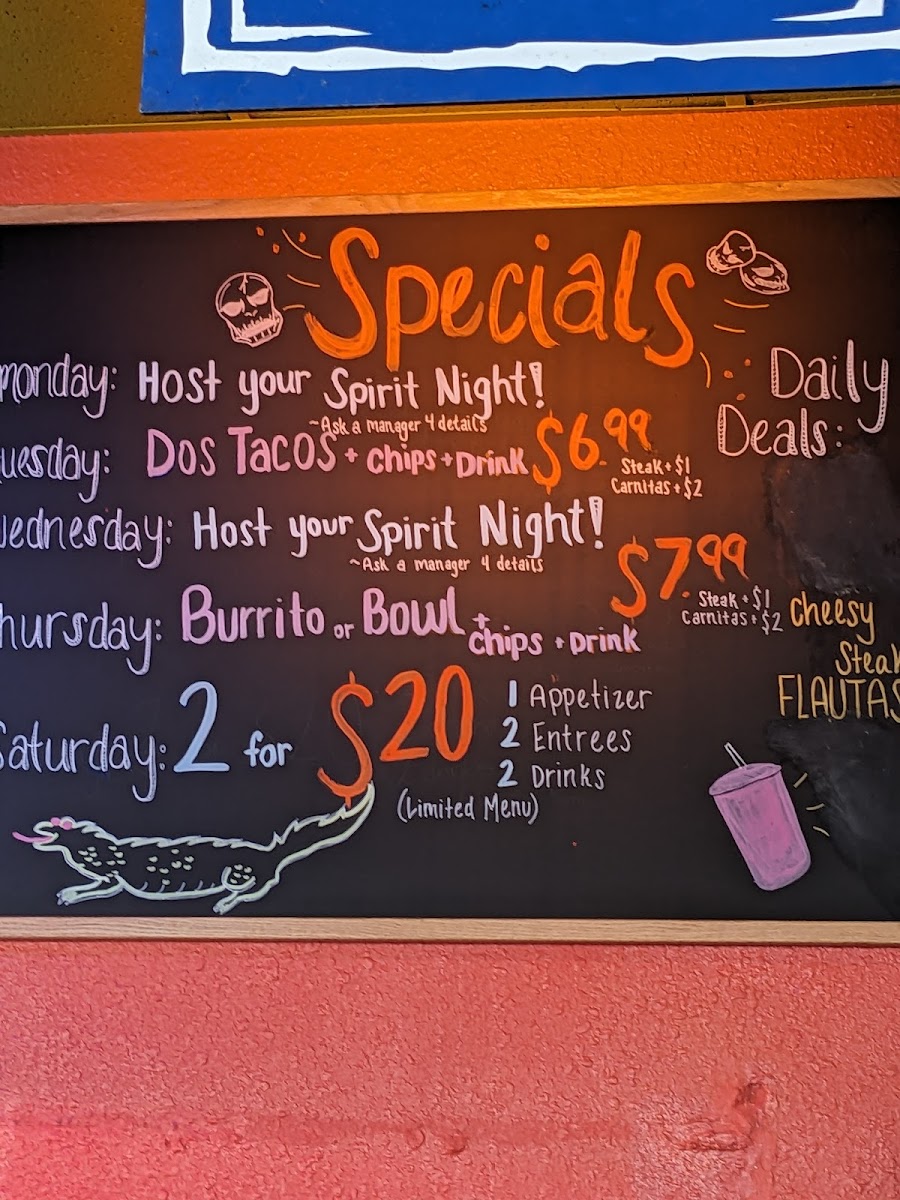 Specials
monday: Host your Spirit Night!
~Ask a manager 4 details
uesday: Dos Tacos + chips + Drink $6.99
Steak + $1
Carnitas + $2
ednesday: Host your Spirit Night!
~Ask a manager 4 details
hursday: Burrito or Bowl + chips + Drink $7.99
Steak + $1
Carnitas + $2
Saturday: 2 for $20
1 Appetizer
2 Entrees
2 Drinks
(Limited Menu)
Daily
Deals:
Cheesy
Steak
FLAUTAS